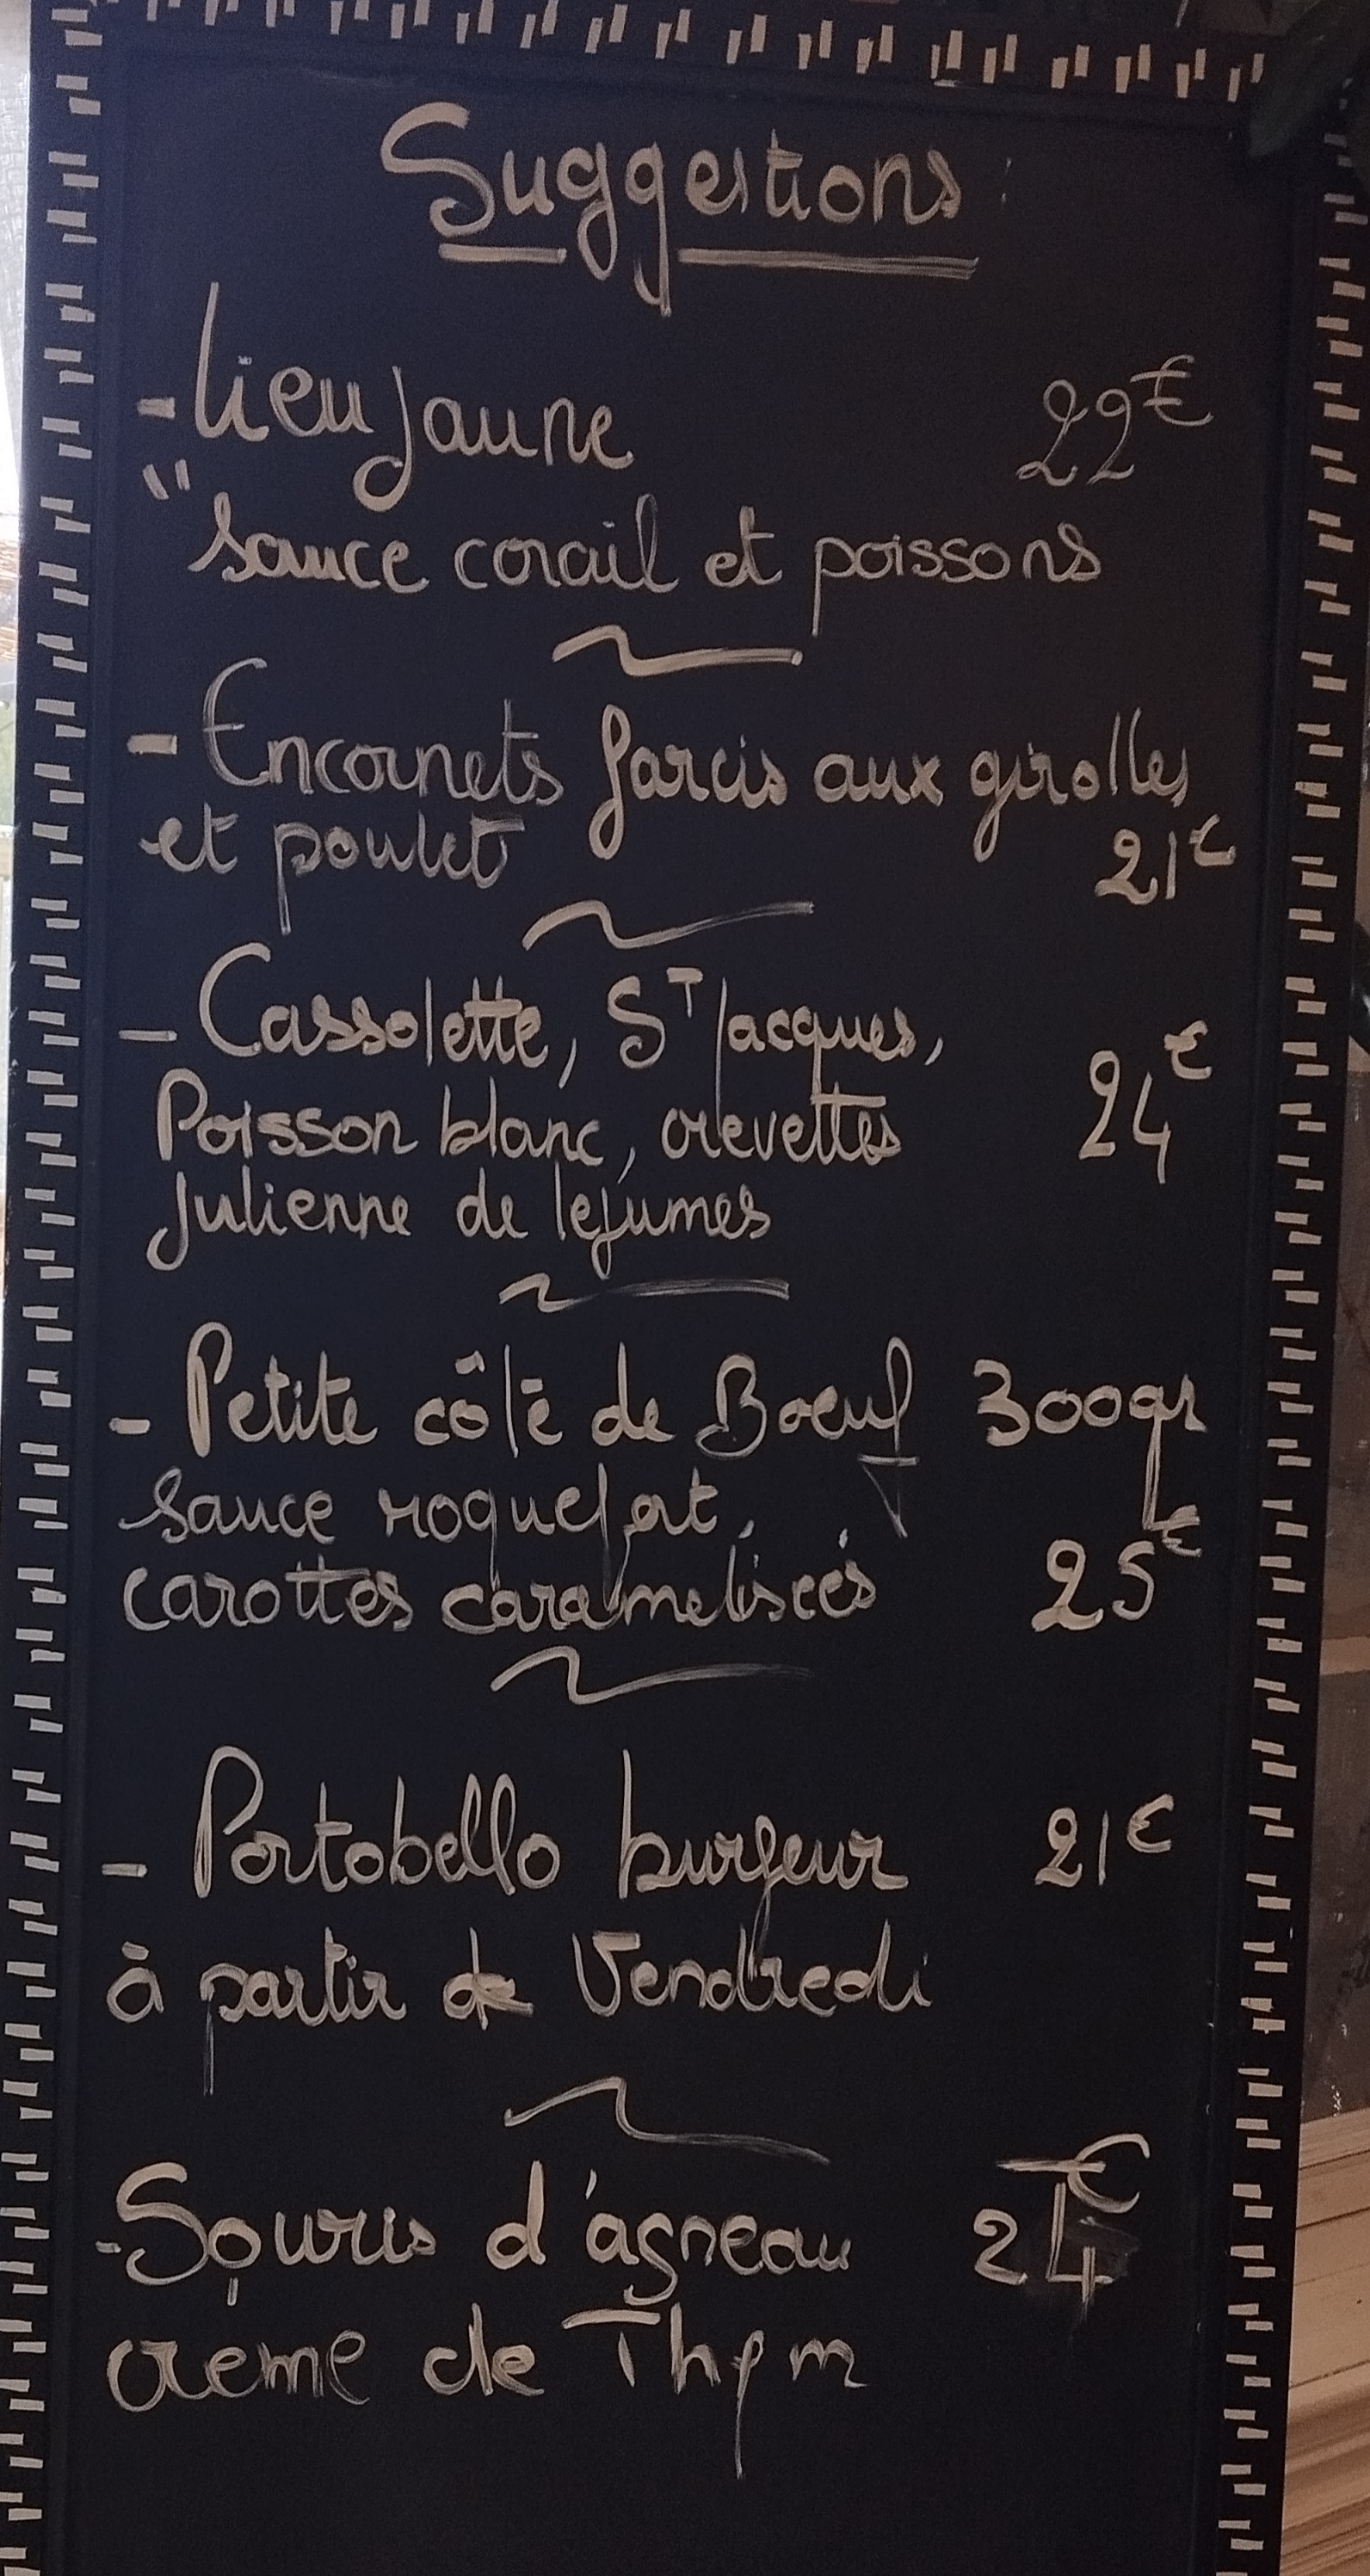 Suggestions :
- Lieu jaune 22€
" sauce corail et poissons
- Encornets farcis aux girolles
et poulet 21€
- Cassolette, ST Jacques,
Poisson blanc, crevettes 24€
Julienne de légumes
- Petite côte de Boeuf 300gr
sauce roquefort,
carottes caramelisées 25€
- Portobello burgeur 21€
à partir de Vendredi
- Souris d'agneau 24€
creme de Thym